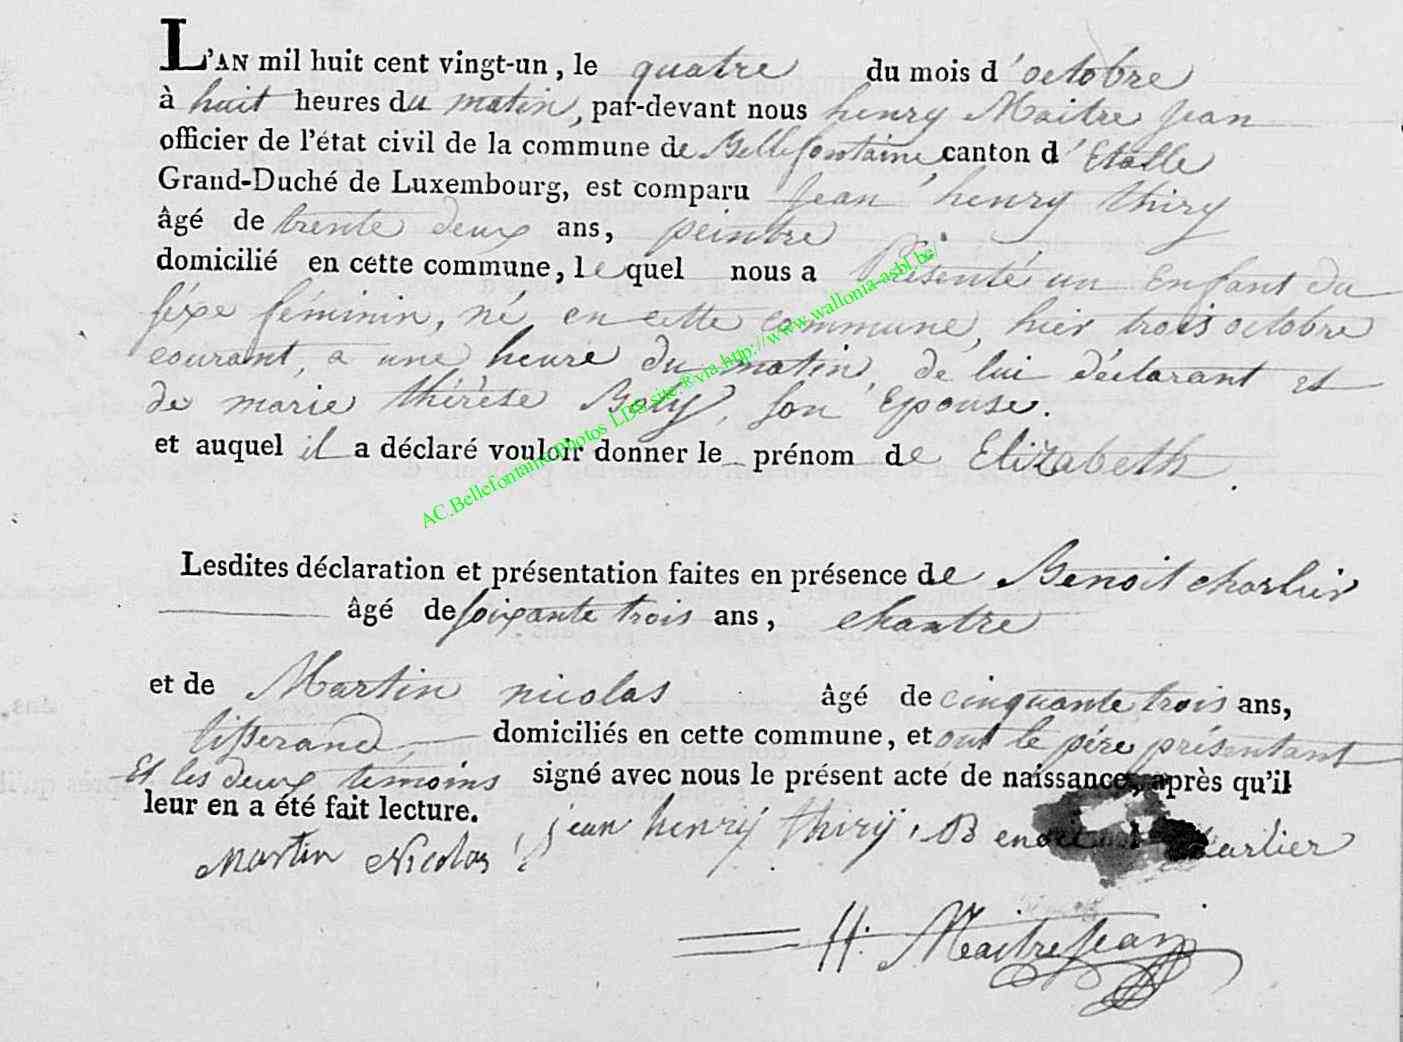 L'AN mil huit cent vingt-un, le quatre du mois d'octobre
à huit heures du matin, par-devant nous henry Maitre jean
officier de l'état civil de la commune de Bellefontaine canton d'Etalle
Grand-Duché de Luxembourg, est comparu jean henry thiry
âgé de trente deux ans, peintre
domicilié en cette commune, lequel nous a Présenté un Enfant du
séxe féminin, né en cette commune, hier trois octobre
courant, a une heure du matin, de lui déclarant et
de marie thérèse son Epouse.
et auquel il a déclaré vouloir donner le prénom de Elizabeth.
AC.Bellefontaine Photos LDS site ®via http://www.wallonia-asbl.be/
Lesdites déclaration et présentation faites en présence de Benoit charlier
âgé de soixante trois ans, chantre
et de Martin nicolas âgé de cinquante trois ans,
tisserand domiciliés en cette commune, et ont le pére présentant
Et les deux témoins signé avec nous le présent acte de naissance, après qu'il
leur en a été fait lecture.
jean henry thiry. Benoit Charlier
Martin Nicolas
H. Maitrejean